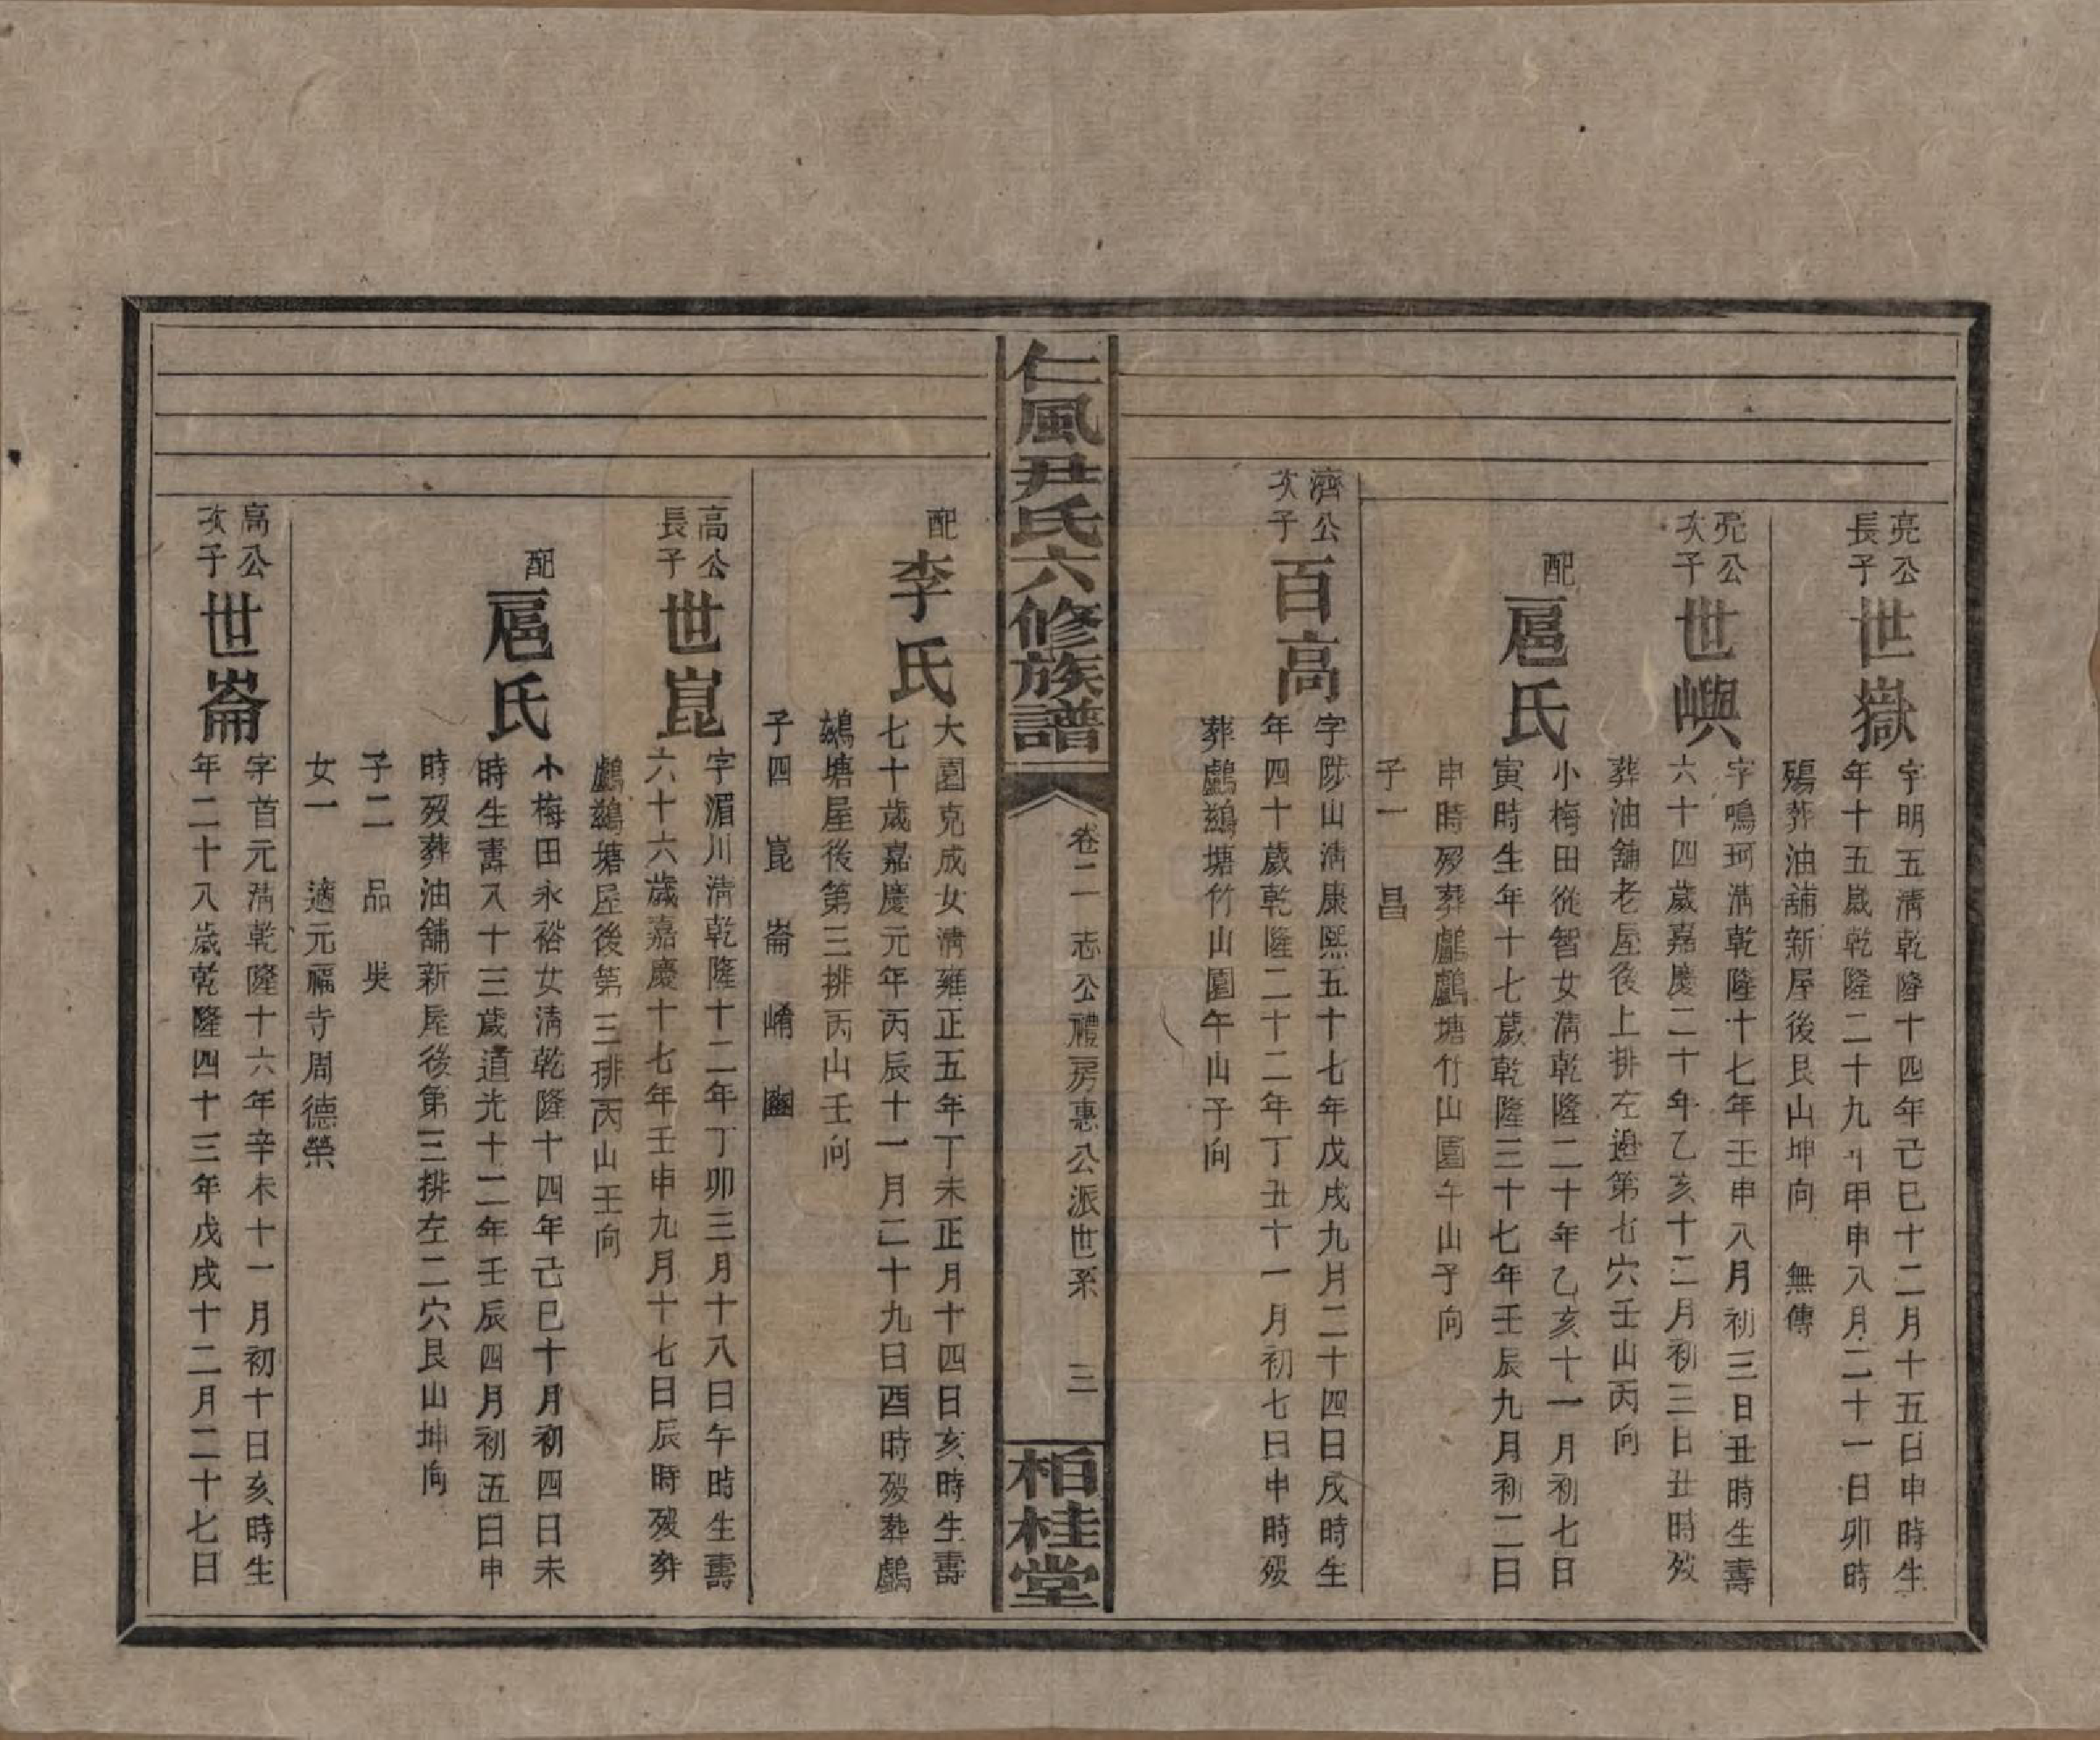 亮公
長子
世嶽
字明五清乾隆十四年己巳十二月十五日申時生
年十五歲乾隆二十九年甲申八月二十一日卯時
殤葬油舖新屋後艮山坤向 無傳
亮公
次子
世嶼
字鳴珂清乾隆十七年壬申八月初三日丑時生壽
六十四歲嘉慶二十年乙亥十二月初三日丑時歿
葬油舖老屋後上排左邊第七穴壬山丙向
配
扈氏
小梅田從智女清乾隆二十年乙亥十一月初七日
寅時生年十七歲乾隆三十七年壬辰九月初二日
申時歿葬鸕鸕塘竹山園午山子向
子一 昌
濟公
次子
百高
字陟山清康熙五十七年戊戌九月二十四日戌時生
年四十歲乾隆二十二年丁丑十一月初七日申時歿
葬鸕鷀塘竹山園午山子向
仁風尹氏六修族譜
卷二 志公禮房惠公派世系 三
柏桂堂
配
李氏
大園克成女清雍正五年丁未正月十四日亥時生壽
七十歲嘉慶元年丙辰十一月二十九日酉時歿葬鸕
鷀塘屋後第三排丙山壬向
子四 崑 崙 崤 豳
高公
長子
世崑
字湄川清乾隆十二年丁卯三月十八日午時生壽
六十六歲嘉慶十七年壬申九月十七日辰時歿葬
鸕鷀塘屋後第三排丙山壬向
配
扈氏
小梅田永裕女清乾隆十四年己巳十月初四日未
時生壽八十三歲道光十二年壬辰四月初五日申
時歿葬油舖新屋後第三排左二穴艮山坤向
子二 品 昊
女一 適元福寺周德榮
高公
次子
世崙
字首元清乾隆十六年辛未十一月初十日亥時生
年二十八歲乾隆四十三年戊戌十二月二十七日